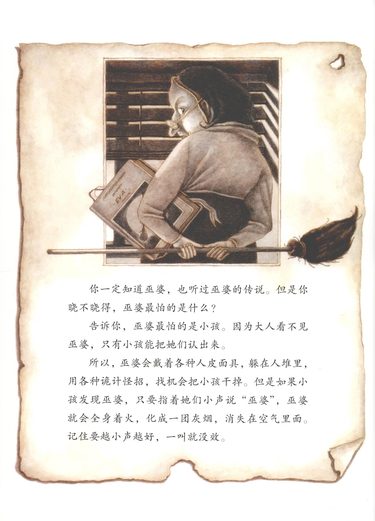 你一定知道巫婆，也听过巫婆的传说。但是你
晓不晓得，巫婆最怕的是什么？
告诉你，巫婆最怕的是小孩。因为大人看不见
巫婆，只有小孩能把她们认出来。
所以，巫婆会戴着各种人皮面具，躲在人堆里，
用各种诡计怪招，找机会把小孩干掉。但是如果小
孩发现巫婆，只要指着她们小声说“巫婆”，巫婆
就会全身着火，化成一团灰烟，消失在空气里面。
记住要越小声越好，一叫就没效。